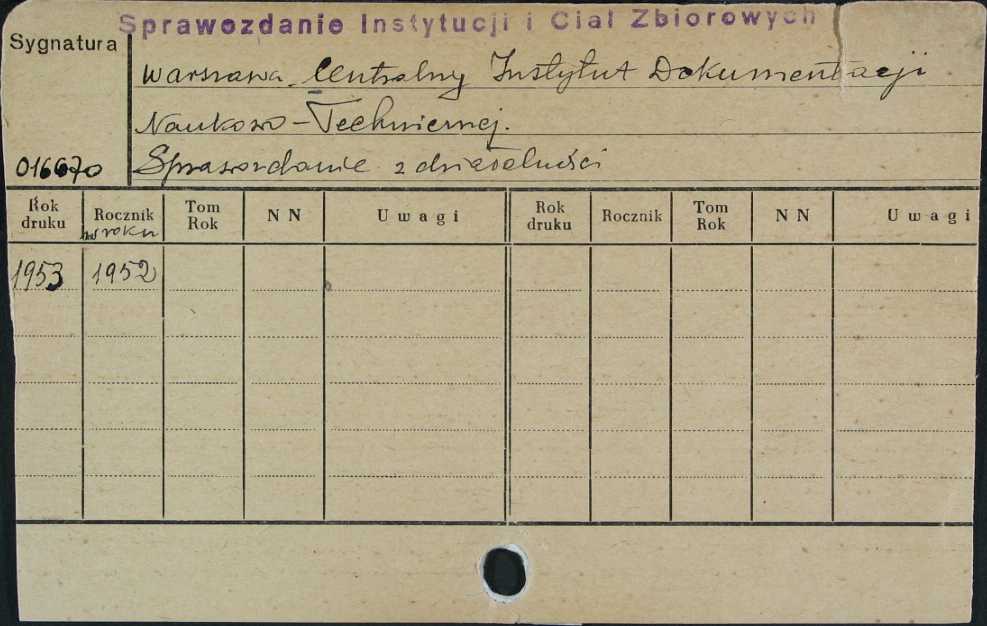 Sprawozdanie Instytucji i Ciał Zbiorowych
Sygnatura
Warszawa. Centralny Instytut Dokumentacji
Naukowo-Technicznej.
016670 Sprawozdanie z działalności
Rok druku Rocznik w roku Tom Rok NN Uwagi Rok druku Rocznik Tom Rok NN Uwagi
1953 1952